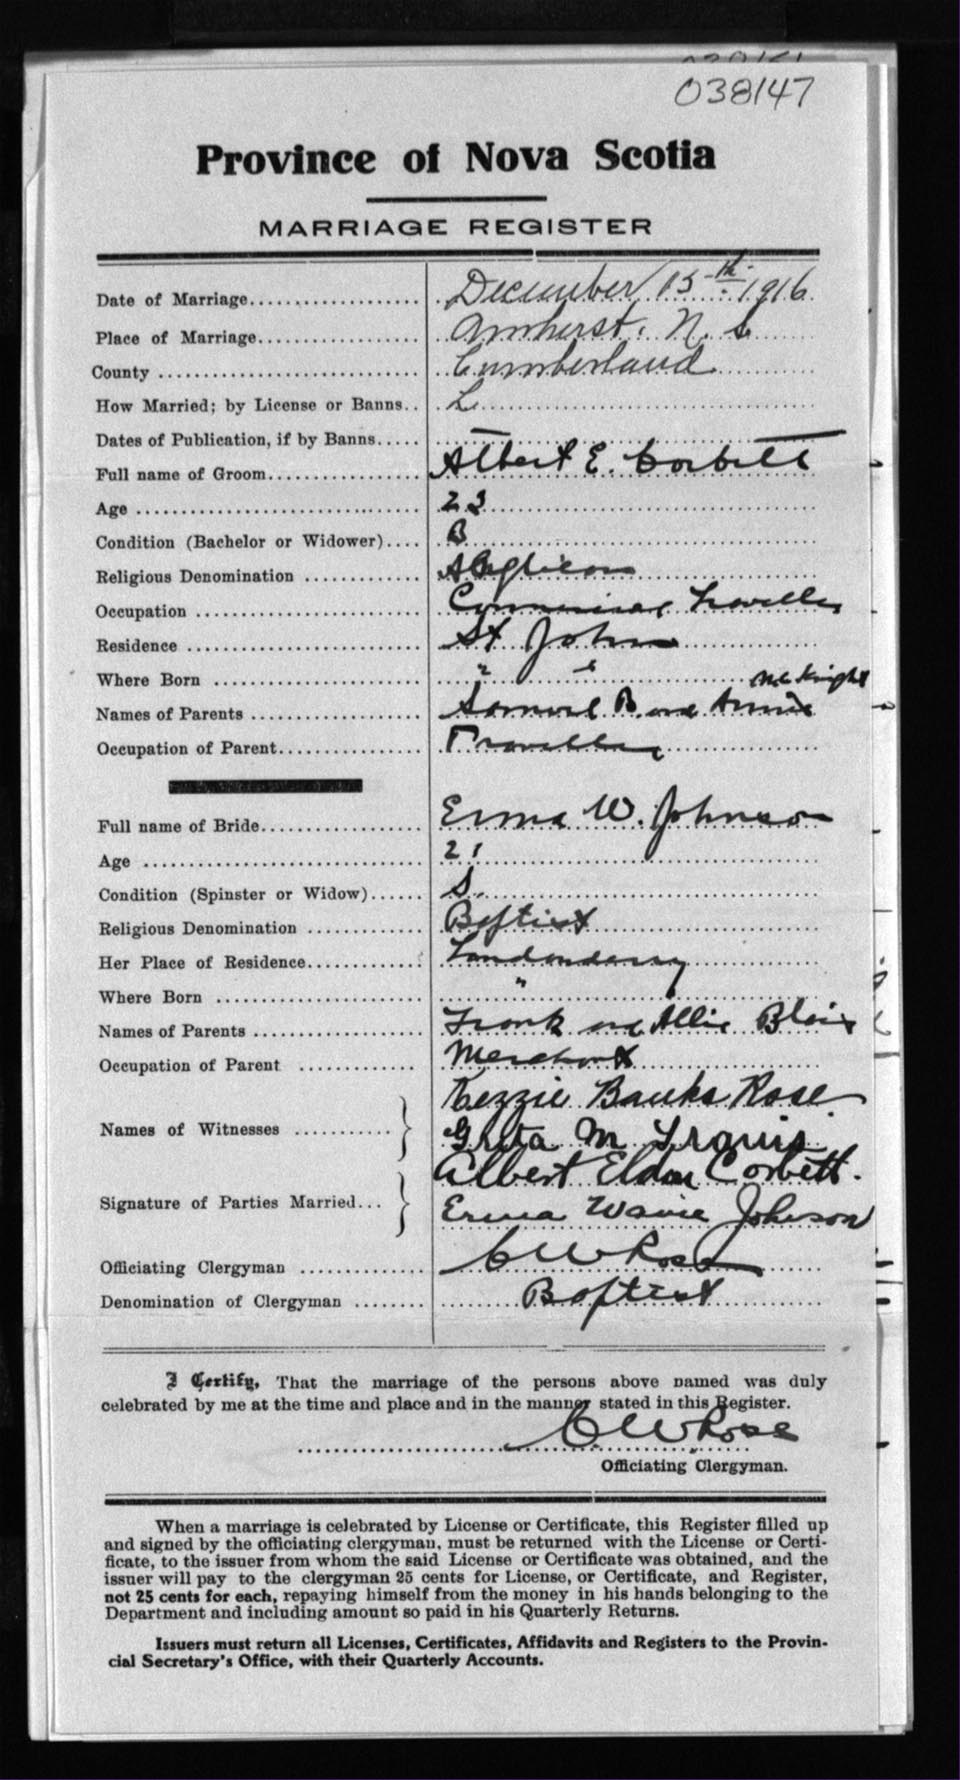 038147
Province of Nova Scotia
MARRIAGE REGISTER
Date of Marriage.................... December 13th 1916.
Place of Marriage................... Amherst. N. S
County ............................. Cumberland
How Married; by License or Banns.. L
Dates of Publication, if by Banns..... —
Full name of Groom.................. Albert E. Corbett
Age ................................ 23
Condition (Bachelor or Widower).... B
Religious Denomination ............. Anglican
Occupation ......................... Commercial Traveller
Residence .......................... St John
Where Born ......................... " "
McKnight
Names of Parents ................... Samuel B. and Annie
Occupation of Parent................ Traveller
Full name of Bride.................. Erma W. Johnson
Age ................................ 21
Condition (Spinster or Widow)...... S.
Religious Denomination ............. Baptist
Her Place of Residence............. Londonderry
Where Born ......................... "
Names of Parents ................... Frank and Allie Blair
Occupation of Parent ............. Merchant
Kezzie Banks Rose
Names of Witnesses ........... } Greta M Travis
Albert Eldon Corbett.
Signature of Parties Married... } Erma Waine Johnson
Officiating Clergyman ............. C W Rose
Denomination of Clergyman ........ Baptist
I Certify, That the marriage of the persons above named was duly
celebrated by me at the time and place and in the manner stated in this Register.
C W Rose
Officiating Clergyman.
When a marriage is celebrated by License or Certificate, this Register filled up
and signed by the officiating clergyman, must be returned with the License or Certi-
ficate, to the issuer from whom the said License or Certificate was obtained, and the
issuer will pay to the clergyman 25 cents for License, or Certificate, and Register,
not 25 cents for each, repaying himself from the money in his hands belonging to the
Department and including amount so paid in his Quarterly Returns.
Issuers must return all Licenses, Certificates, Affidavits and Registers to the Provin-
cial Secretary's Office, with their Quarterly Accounts.